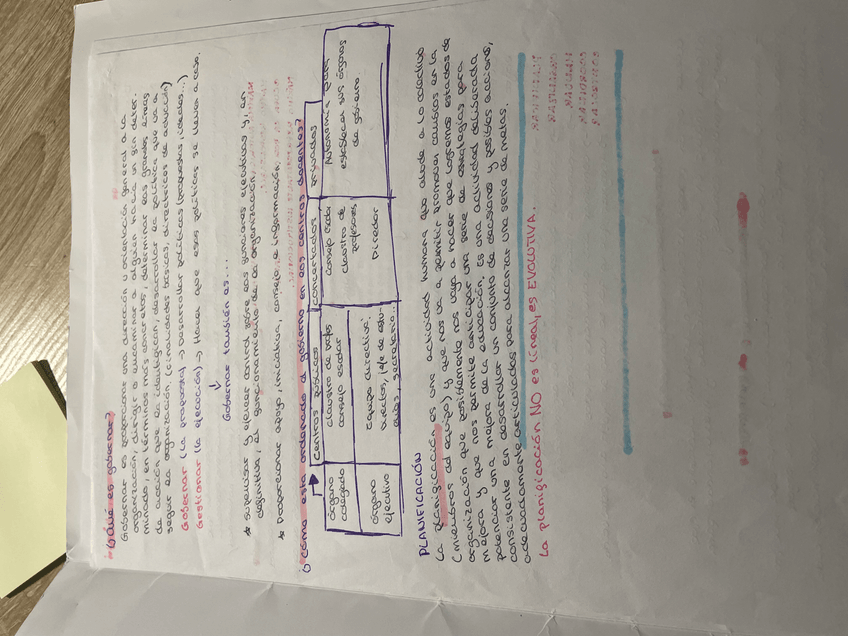 ¿Qué es gobernar?
Gobernar es proporcionar una dirección u orientación general a la
organización, dirigir o encaminar a alguien hacia un fin deter-
minado, en términos más concretos, determinar las grandes líneas
de acción que la identifican, desarrollar la política que va a
seguir la organización. (finalidades básicas, directrices de actuación)
Gobernar (la propuesta) → Desarrollar políticas (propuestas, ideales...)
Gestionar (la ejecución) → Hacer que esas políticas se lleven a cabo.
↓
Gobernar también es...
★ Supervisar y ejercer control sobre las funciones ejecutivas y, en
definitiva, el funcionamiento de la organización.
★ Proporcionar apoyo, iniciativa, consejo e información.
¿Cómo está ordenado el gobierno en los centros docentes?
centros públicos concertados privados
órgano colegiado
claustro de profes
consejo escolar
consejo escolar
claustro de
profesores
Autonomía para
establecer sus órganos
de gobierno
órgano ejecutivo
Equipo directivo:
director, jefe de estu-
dios, secretario.
Director
PLANIFICACIÓN
La planificación es una actividad humana que atiende a lo colectivo
(miembros del equipo) y que nos va a permitir promover cambios en la
organización que posiblemente nos vaya a hacer que logremos estados de
mejora y que nos permite anticipar una serie de estrategias para
potenciar una mejora de la educación, es una actividad deliberada
consistente en desarrollar un conjunto de decisiones y posibles acciones,
adecuadamente articuladas para alcanzar una serie de metas.
La planificación NO es lineal, es EVOLUTIVA.